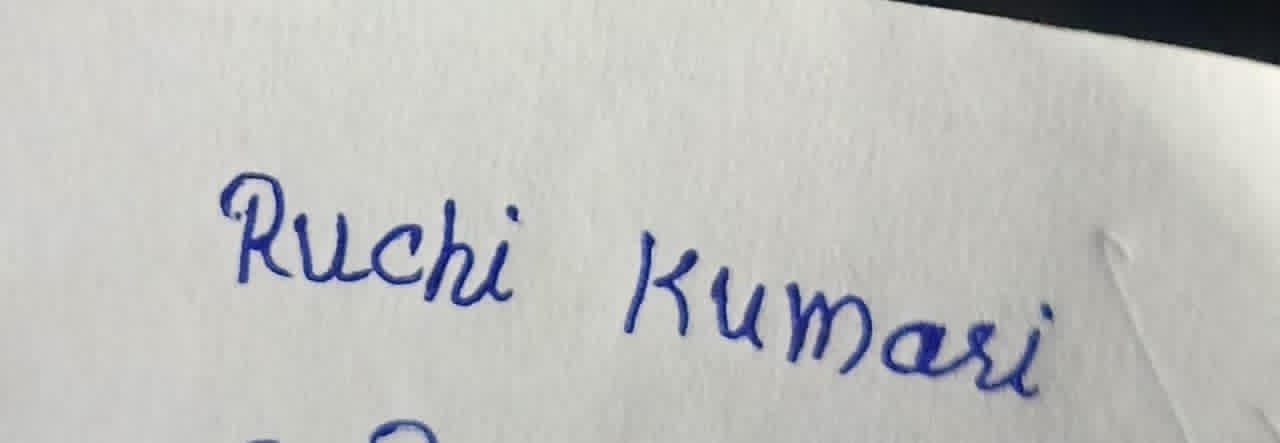 Ruchi Kumari